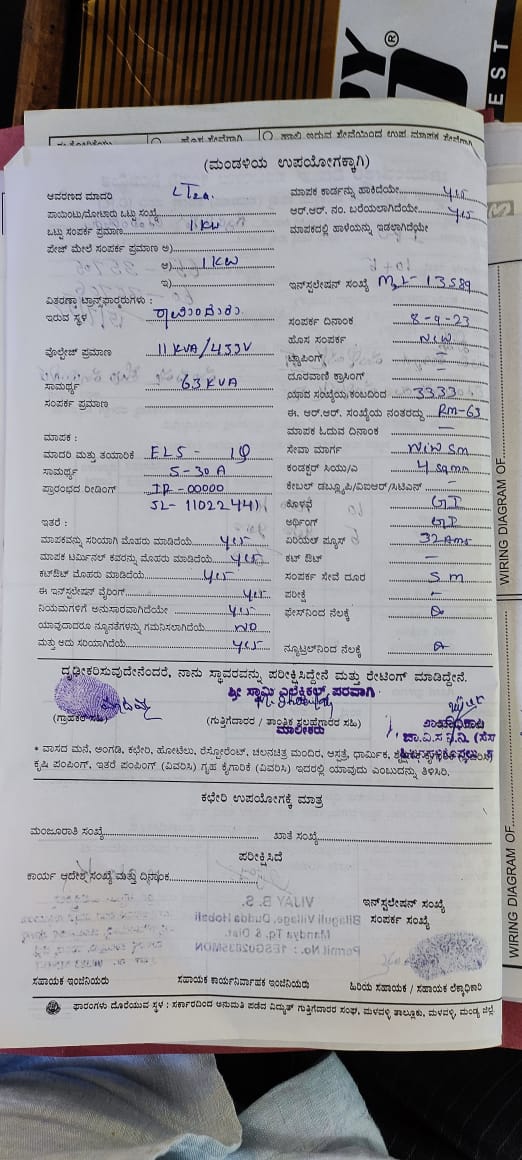 (ಮಂಡಳಿಯ ಉಪಯೋಗಕ್ಕಾಗಿ)
ಆವರಣದ ಮಾದರಿ LT2a.
ಮಾಪಕ ಕಾರ್ಡನ್ನು ಹಾಕಿದೆಯೇ yes
ಪಾಯಿಂಟು/ಮೋಟಾರು ಒಟ್ಟು ಸಂಖ್ಯೆ
ಆರ್.ಆರ್. ನಂ. ಬರೆಯಲಾಗಿದೆಯೇ yes
ಒಟ್ಟು ಸಂಪರ್ಕ ಪ್ರಮಾಣ 1 KW
ಮಾಪಕದಲ್ಲಿ ಹಾಳೆಯನ್ನು ಇಡಲಾಗಿದೆಯೇ
ಪೇಜ್ ಮೇಲೆ ಸಂಪರ್ಕ ಪ್ರಮಾಣ ಅ)
ಆ) 1 KW
ಇ)
ಇನ್‌ಸ್ಟಲೇಷನ್ ಸಂಖ್ಯೆ 13589
ವಿತರಣಾ ಟ್ರಾನ್ಸ್‌ಫಾರ್ಮರುಗಳು :
ಇರುವ ಸ್ಥಳ
ಸಂಪರ್ಕ ದಿನಾಂಕ 8-9-23
ಹೊಸ ಸಂಪರ್ಕ NEW
ವೋಲ್ಟೇಜ್ ಪ್ರಮಾಣ 11 KVA/433V
ಟ್ಯಾಪಿಂಗ್ —
ದೂರವಾಣಿ ಕ್ರಾಸಿಂಗ್ —
ಸಾಮರ್ಥ್ಯ 63 KVA
ಯಾವ ಸಂಖ್ಯೆಯ ಕಂಬದಿಂದ 3333
ಸಂಪರ್ಕ ಪ್ರಮಾಣ
ಈ. ಆರ್.ಆರ್. ಸಂಖ್ಯೆಯ ನಂತರದ್ದು RM-63
ಮಾಪಕ ಓದುವ ದಿನಾಂಕ —
ಮಾಪಕ :
ಸೇವಾ ಮಾರ್ಗ
ಮಾದರಿ ಮತ್ತು ತಯಾರಿಕೆ
ಸಾಮರ್ಥ್ಯ 5-30A
ಕಂಡಕ್ಟರ್ ಸಿಯು/ಎ 4 sqmm
ಪ್ರಾರಂಭದ ರೀಡಿಂಗ್ IR - 00000
ಕೇಬಲ್ ಡಬ್ಲ್ಯೂಪಿ/ವಿಐಆರ್/ಸಿಟಿಎಸ್ —
SL- 11022441
ಕೊಳವೆ GI
ಇತರೆ :
ಅರ್ಥಿಂಗ್ GI
ಮಾಪಕವನ್ನು ಸರಿಯಾಗಿ ಮೊಹರು ಮಾಡಿದೆಯೆ yes
ಏರಿಯಲ್ ಫ್ಯೂಸ್ 32 Ams
ಮಾಪಕ ಟರ್ಮಿನಲ್ ಕವರನ್ನು ಮೊಹರು ಮಾಡಿದೆಯೆ yes
ಕಟ್ ಔಟ್ —
ಕಟ್‌ಔಟ್ ಮೊಹರು ಮಾಡಿದೆಯೆ yes
ಸಂಪರ್ಕ ಸೇವೆ ದೂರ 5m
ಈ ಇನ್‌ಸ್ಟಲೇಷನ್ ವೈರಿಂಗ್ yes
ಪರೀಕ್ಷೆ —
ನಿಯಮಗಳಿಗೆ ಅನುಸಾರವಾಗಿದೆಯೇ yes
ಫೇಸ್‌ನಿಂದ ನೆಲಕ್ಕೆ
ಯಾವುದಾದರೂ ನ್ಯೂನತೆಗಳನ್ನು ಗಮನಿಸಲಾಗಿದೆಯೆ NO
ಮತ್ತು ಅದು ಸರಿಯಾಗಿದೆಯೆ yes
ನ್ಯೂಟ್ರಲ್‌ನಿಂದ ನೆಲಕ್ಕೆ
ದೃಢೀಕರಿಸುವುದೇನೆಂದರೆ, ನಾನು ಸ್ಥಾವರವನ್ನು ಪರೀಕ್ಷಿಸಿದ್ದೇನೆ ಮತ್ತು ರೇಟಿಂಗ್ ಮಾಡಿದ್ದೇನೆ.
ಶ್ರೀ ಸ್ವಾಮಿ ಎಲೆಕ್ಟ್ರಿಕಲ್ಸ್, ಪರವಾಗಿ
(ಗ್ರಾಹಕರ ಸಹಿ)
(ಗುತ್ತಿಗೆದಾರರ / ತಾಂತ್ರಿಕ ಸಲಹೆಗಾರರ ಸಹಿ)
ಮಾಲೀಕರು
* ವಾಸದ ಮನೆ, ಅಂಗಡಿ, ಕಛೇರಿ, ಹೋಟೆಲು, ರೆಸ್ಟೋರೆಂಟ್, ಚಲನಚಿತ್ರ ಮಂದಿರ, ಆಸ್ಪತ್ರೆ, ಧಾರ್ಮಿಕ,
ಕೃಷಿ ಪಂಪಿಂಗ್, ಇತರೆ ಪಂಪಿಂಗ್ (ವಿವರಿಸಿ) ಗೃಹ ಕೈಗಾರಿಕೆ (ವಿವರಿಸಿ) ಇದರಲ್ಲಿ ಯಾವುದು ಎಂಬುದನ್ನು ತಿಳಿಸಿರಿ.
ಕಛೇರಿ ಉಪಯೋಗಕ್ಕೆ ಮಾತ್ರ
ಮಂಜೂರಾತಿ ಸಂಖ್ಯೆ
ಖಾತೆ ಸಂಖ್ಯೆ
ಪರೀಕ್ಷಿಸಿದೆ
ಕಾರ್ಯ ಆದೇಶ ಸಂಖ್ಯೆ ಮತ್ತು ದಿನಾಂಕ
ಇನ್‌ಸ್ಟಲೇಷನ್ ಸಂಖ್ಯೆ
ಸಂಪರ್ಕ ಸಂಖ್ಯೆ
VIJAY B. S.
Bilaguli Village, Dudda Hobali
Mandya Tq. & Dist.
Permit No. : 1ESG0283SMDN
ಸಹಾಯಕ ಇಂಜಿನಿಯರು
ಸಹಾಯಕ ಕಾರ್ಯನಿರ್ವಾಹಕ ಇಂಜಿನಿಯರು
ಹಿರಿಯ ಸಹಾಯಕ / ಸಹಾಯಕ ಲೆಕ್ಕಾಧಿಕಾರಿ
ಫಾರಂಗಳು ದೊರೆಯುವ ಸ್ಥಳ : ಸರ್ಕಾರದಿಂದ ಅನುಮತಿ ಪಡೆದ ವಿದ್ಯುತ್ ಗುತ್ತಿಗೆದಾರರ ಸಂಘ, ಮಳವಳ್ಳಿ ತಾಲ್ಲೂಕು, ಮಳವಳ್ಳಿ, ಮಂಡ್ಯ ಜಿಲ್ಲೆ.
WIRING DIAGRAM OF
WIRING DIAGRAM OF